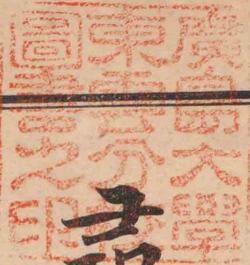 廣島大學
東雲分校
圖書之印